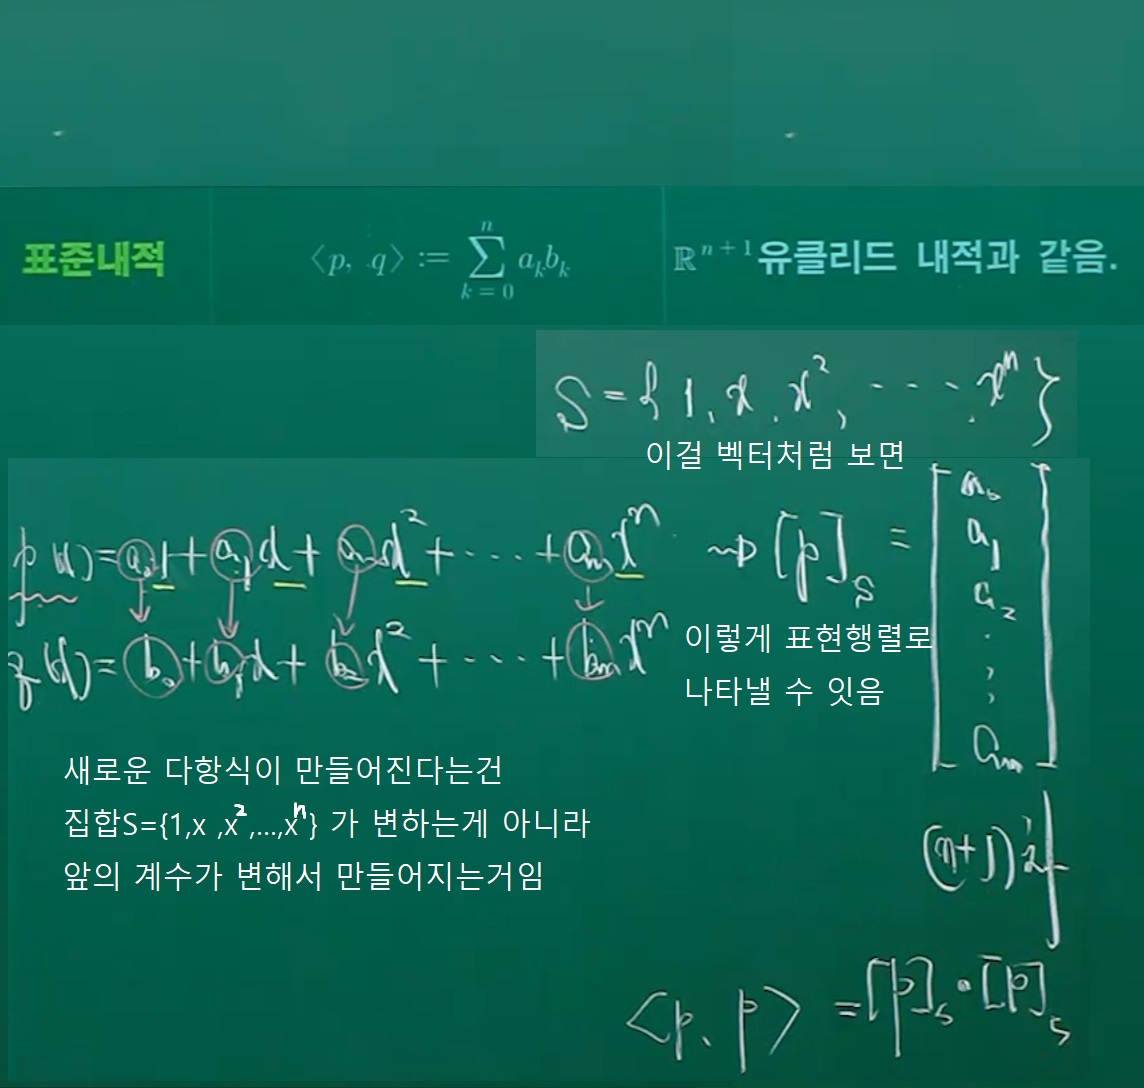 표준내적
⟨p, q⟩ := ∑_{k=0}^{n} a_k b_k
ℝ^{n+1} 유클리드 내적과 같음.
S = { 1, x, x², ‥‥, xⁿ }
이걸 벡터처럼 보면
p(x) = a₀1 + a₁x + a₂x² + ‥‥ + aₙxⁿ ⇝ [p]_S = [a₀ a₁ a₂ ⋮ aₙ]
q(x) = b₀ + b₁x + b₂x² + ‥‥ + bₙxⁿ
이렇게 표현행렬로
나타낼 수 잇음
새로운 다항식이 만들어진다는건
집합S={1,x ,x²,...,xⁿ} 가 변하는게 아니라
앞의 계수가 변해서 만들어지는거임
(n+1)
⟨p, p⟩ = [p]_S · [p]_S